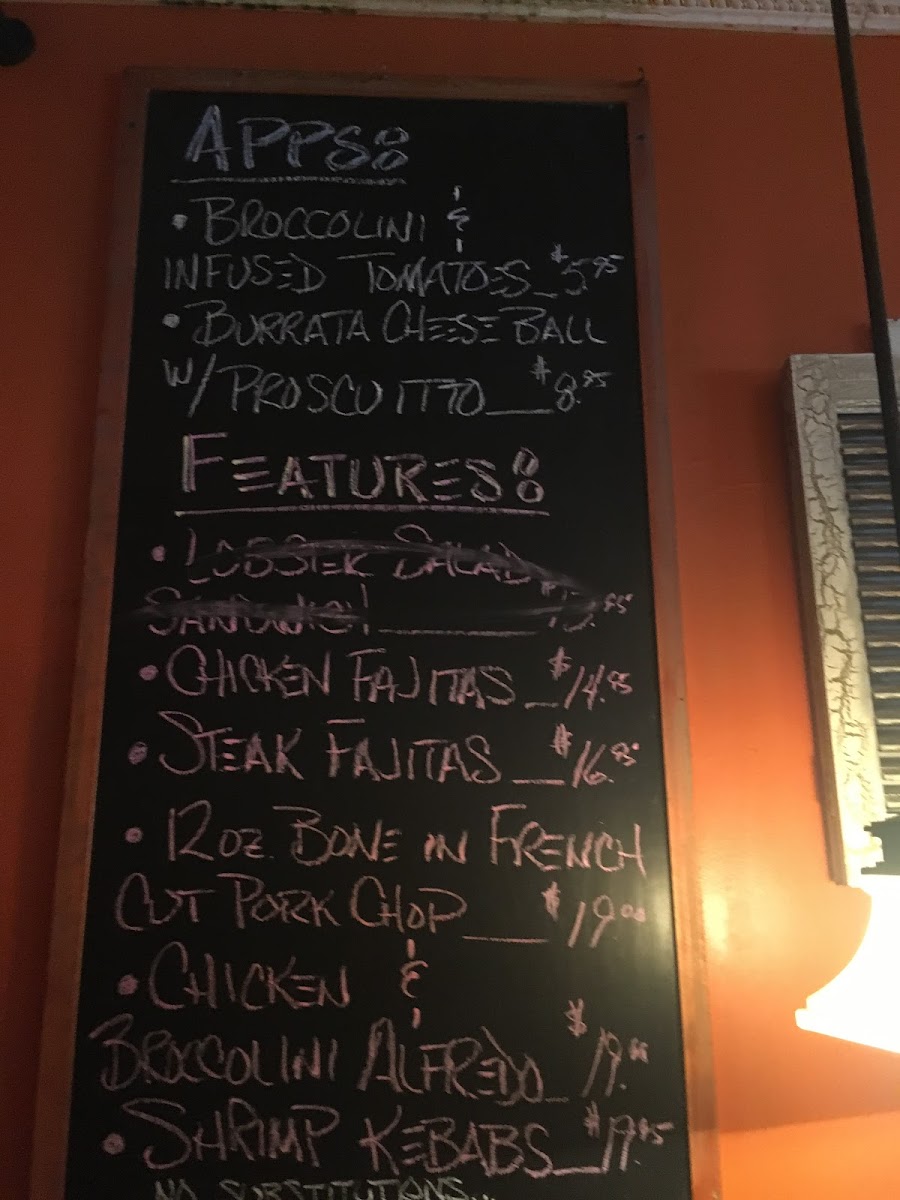 APPS:
• BROCCOLINI &
INFUSED TOMATOES_$5.95
• BURRATA CHEESE BALL
W/ PROSCUITTO___$8.95
FEATURES:
• LOBSTER SALAD
SANDWICH
• CHICKEN FAJITAS_$14.95
• STEAK FAJITAS__$16.95
• 12 OZ. BONE IN FRENCH
CUT PORK CHOP___$19.00
• CHICKEN &
BROCCOLINI ALFREDO_
• SHRIMP KEBABS__$19.95
NO SUBSTITUTIONS...